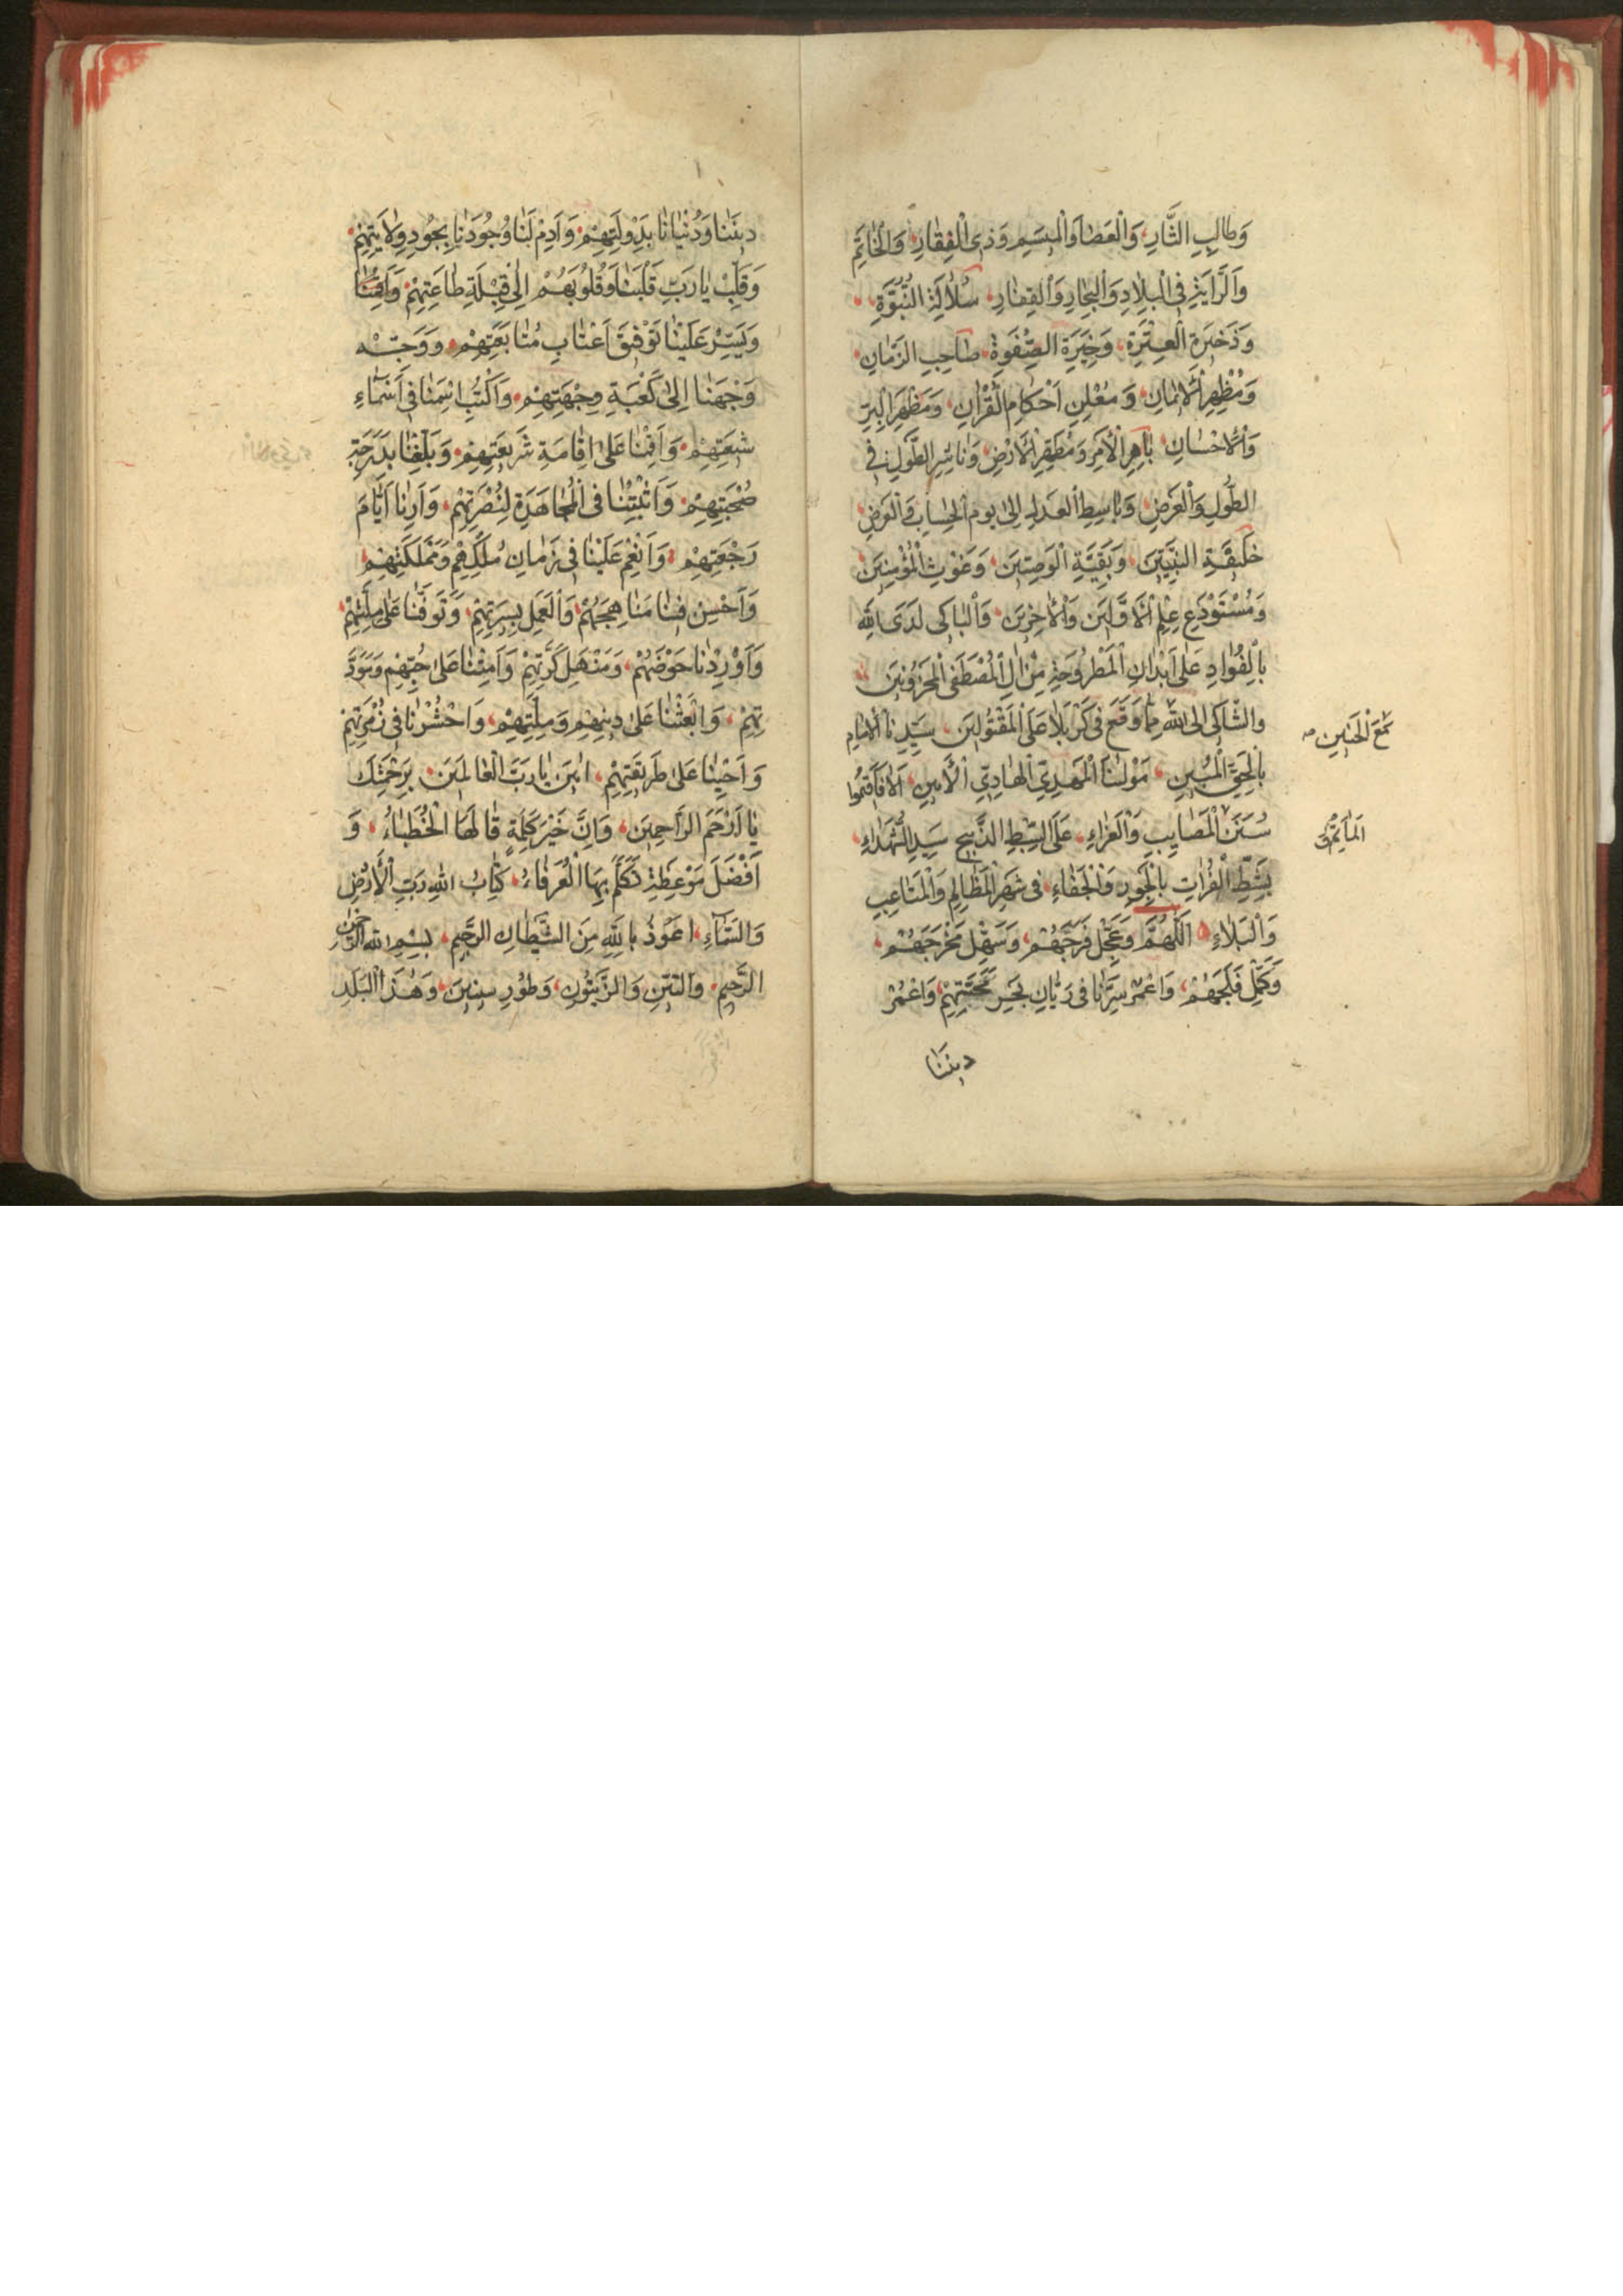 وَطالِبِ الثَّارِ، وَالْعَصٰا وَالْمِيسَمِ وَذِى الْفِقٰارِ، وَالْخٰاتَمِ
وَالرَّايَةِ فِى الْبِلٰادِ وَالْبِحٰارِ وَالْقِفٰارِ، سُلٰالَةِ النُّبُوَّةِ،
وَذَخيرَةِ الْعِتْرَةِ، وَخِيَرَةِ الصَّفْوَةِ، صٰاحِبِ الزَّمٰانِ،
وَمُظْهِرِ الْاٖيمٰانِ، وَمُعْلِنِ اَحْكٰامِ الْقُرْاٰنِ، وَمَظْهَرِ الْبِرِّ
وَالْاِحْسٰانِ، بٰاهِرِ الْاَمْرِ وَمُطَهِّرِ الْاَرْضِ، وَنٰاشِرِ الطَّوْلِ فى
الطُّولِ وَالْعَرْضِ، وَبٰاسِطِ الْعَدْلِ اِلىٰ يَوْمِ الْحِسٰابِ وَالْعَرْضِ،
خَليفَةِ النَّبِيّينَ، وَبَقِيَّةِ الْوَصِيّينَ، وَغَوْثِ الْمُؤْمِنينَ،
وَمُسْتَوْدَعِ عِلْمِ الْاَوَّلينَ وَالْاٰخِرينَ، وَالْبٰاكى لَدَى اللّٰهِ
بِالْفُؤٰادِ عَلىٰ اَبْدٰانِ الْمَطْرُوحَةِ مِنْ اٰلِ الْمُصْطَفَى الْمَحْزُونينَ،
وَالشّٰاكى اِلَى اللّٰهِ مِمّٰا وَقَعَ فى كَرْبَلٰا عَلَى الْمَقْتُولينَ، سَيِّدِنَا الْاِمٰامِ
مَعَ الْحَنينِ صه
بِالْحَقِّ الْمُبينِ، مَوْلٰنَا الْمَهْدِىِّ الْهٰادِىِّ الْاَمينِ، اَلٰا فَاَقيمُوا
سُنَنَ الْمَصٰايِبِ وَالْعَزٰاءِ، عَلَى السِّبْطِ الذَّبيحِ سَيِّدِ الشُّهَدٰاءِ،
الْمَاٰتِمِ وَ
بِشَطِّ الْفُرٰاتِ بِالْجَوْرِ وَالْجَفٰاءِ، فى شَهْرِ الْمَظٰالِمِ وَالْمَتٰاعِبِ
وَالْبَلٰاءِ، اَللّٰهُمَّ وَعَجِّلْ فَرَجَهُمْ، وَسَهِّلْ مَخْرَجَهُمْ،
وَكَمِّلْ فَلَجَهُمْ، وَاغْمُرْ سِرَّنٰا فى رَيّٰانِ بَحْرِ مَحَبَّتِهِمْ، وَاعْمُرْ
دينَنٰا
دينَنٰا وَدُنْيٰانٰا بِدَوْلَتِهِمْ، وَاَدِمْ لَنٰا وُجُودَنٰا بِجُودِ وِلٰايَتِهِمْ،
وَقَلِّبْ يٰا رَبِّ قَلْبَنٰا وَقُلُوبَهُمْ اِلىٰ قِبْلَةِ طٰاعَتِهِمْ،
وَيَسِّرْ عَلَيْنٰا تَوْفيقَ اَعْتٰابِ مُتٰابَعَتِهِمْ، وَوَجِّهْ
وَجْهَنٰا اِلىٰ كَعْبَةِ وِجْهَتِهِمْ، وَاكْتُبْ اِسْمَنٰا فى اَسْمٰاءِ
شيعَتِهِمْ، وَاَقِمْنٰا عَلىٰ اِقٰامَةِ شَريعَتِهِمْ، وَبَلِّغْنٰا بِدَرَجَةِ
صُحْبَتِهِمْ، وَاَثْبِتْنٰا فى الْمُجٰاهَدَةِ لِنُصْرَتِهِمْ، وَاَرِنٰا اَيّٰامَ
رَجْعَتِهِمْ، وَاَنْعِمْ عَلَيْنٰا فى زَمٰانِ مُلْكِهِمْ وَمَمْلَكَتِهِمْ،
وَاَحْسِنْ فينٰا مَنٰاهِجَهُمْ وَالْعَمَلَ بِسيرَتِهِمْ، وَتَوَفَّنٰا عَلىٰ مِلَّتِهِمْ،
وَاَوْرِدْنٰا حَوْضَهُمْ، وَمَنْهَلَ كَرَّتِهِمْ وَاَمِتْنٰا عَلىٰ حُبِّهِمْ وَمَوَدَّ
تِهِمْ، وَابْعَثْنٰا عَلىٰ دينِهِمْ وَمِلَّتِهِمْ، وَاحْشُرْنٰا فى زُمْرَتِهِمْ
وَاَحْيِنٰا عَلىٰ طَريقَتِهِمْ، اٰمينَ يٰا رَبَّ الْعٰالَمينَ، بِرَحْمَتِكَ
يٰا اَرْحَمَ الرّٰاحِمينَ، وَاِنَّ خَيْرَ كَلِمَةٍ قٰالَهَا الْخُطَبٰاءُ، وَ
اَفْضَلَ مَوْعِظَةٍ تَكَلَّمَ بِهَا الْعُرَفٰاءُ، كِتٰابُ اللّٰهِ رَبِّ الْاَرْضِ
وَالسَّمٰاءِ، اَعُوذُ بِاللّٰهِ مِنَ الشَّيْطٰانِ الرَّجيمِ، بِسْمِ اللّٰهِ الرَّحْمٰنِ
الرَّحيمِ، وَالتّينِ وَالزَّيْتُونِ، وَطُورِ سينينَ، وَهٰذَا الْبَلَدِ